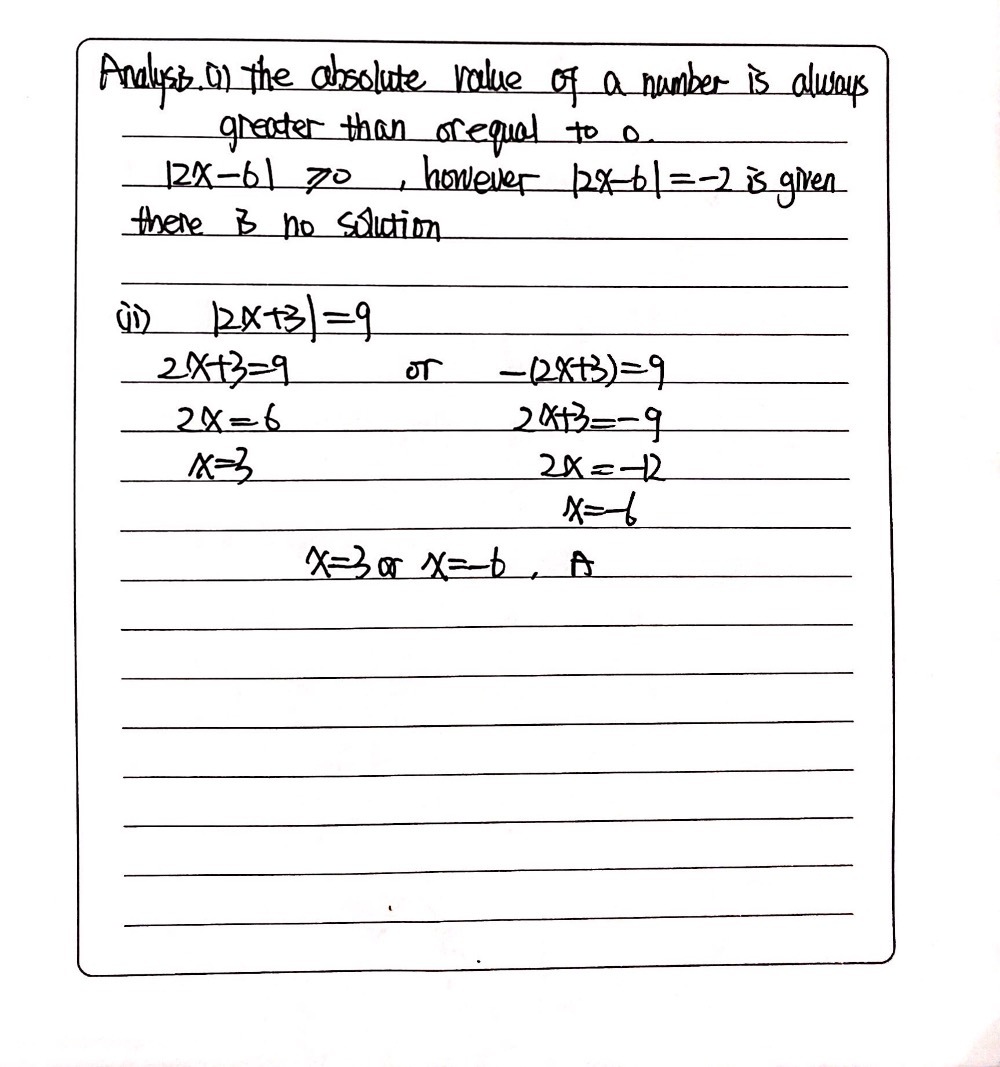 Analysis. (i) the absolute value of a number is always
greater than or equal to 0.
|2x-6| ⩾0 , however |2x-6|=-2 is given
there is no solution
(ii) |2x+3|=9
2x+3=9 or -(2x+3)=9
2x=6 2x+3=-9
x=3 2x=-12
x=-6
x=3 or x=-6 , A